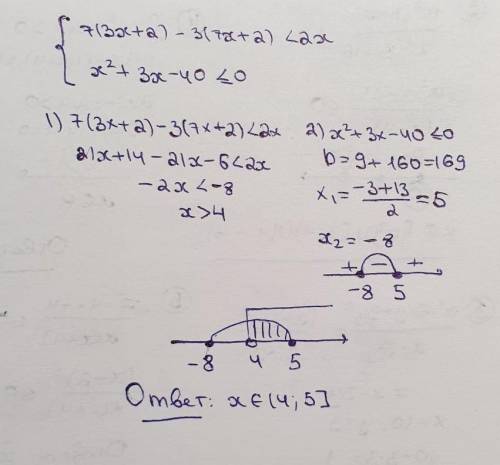 7(3x+2) - 3(7x+2) <2x
x²+3x-40≤0
1) 7(3x+2)-3(7x+2)<2x
21x+14-21x-6<2x
-2x<-8
x>4
2) x²+3x-40≤0
D=9+160=169
x₁=(-3+13)/2=5
x₂=-8
+ - +
-8 5
-8 4 5
Ответ: x∈(4;5]